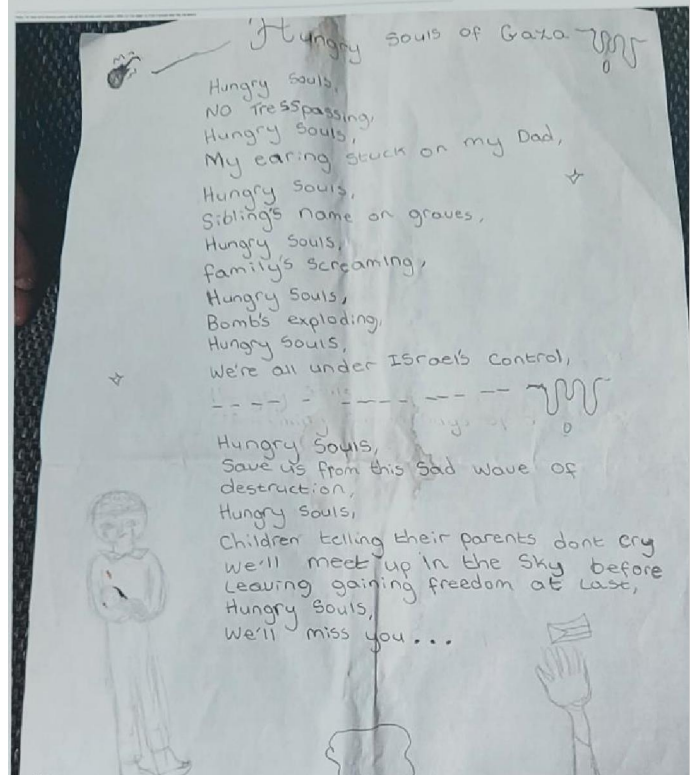 Hungry Souls of Gaza
Hungry Souls,
NO Tresspassing,
Hungry Souls,
My earing stuck on my Dad,
Hungry Souls,
Sibling's name on graves,
Hungry Souls,
family's screaming,
Hungry Souls,
Bomb's exploding,
Hungry Souls,
We're all under ISrael's control,
Hungry Souls,
Save us from this sad wave of
destruction,
Hungry Souls,
Children telling their parents dont cry
we'll meet up in the sky before
Leaving gaining freedom at last,
Hungry Souls,
We'll miss you...